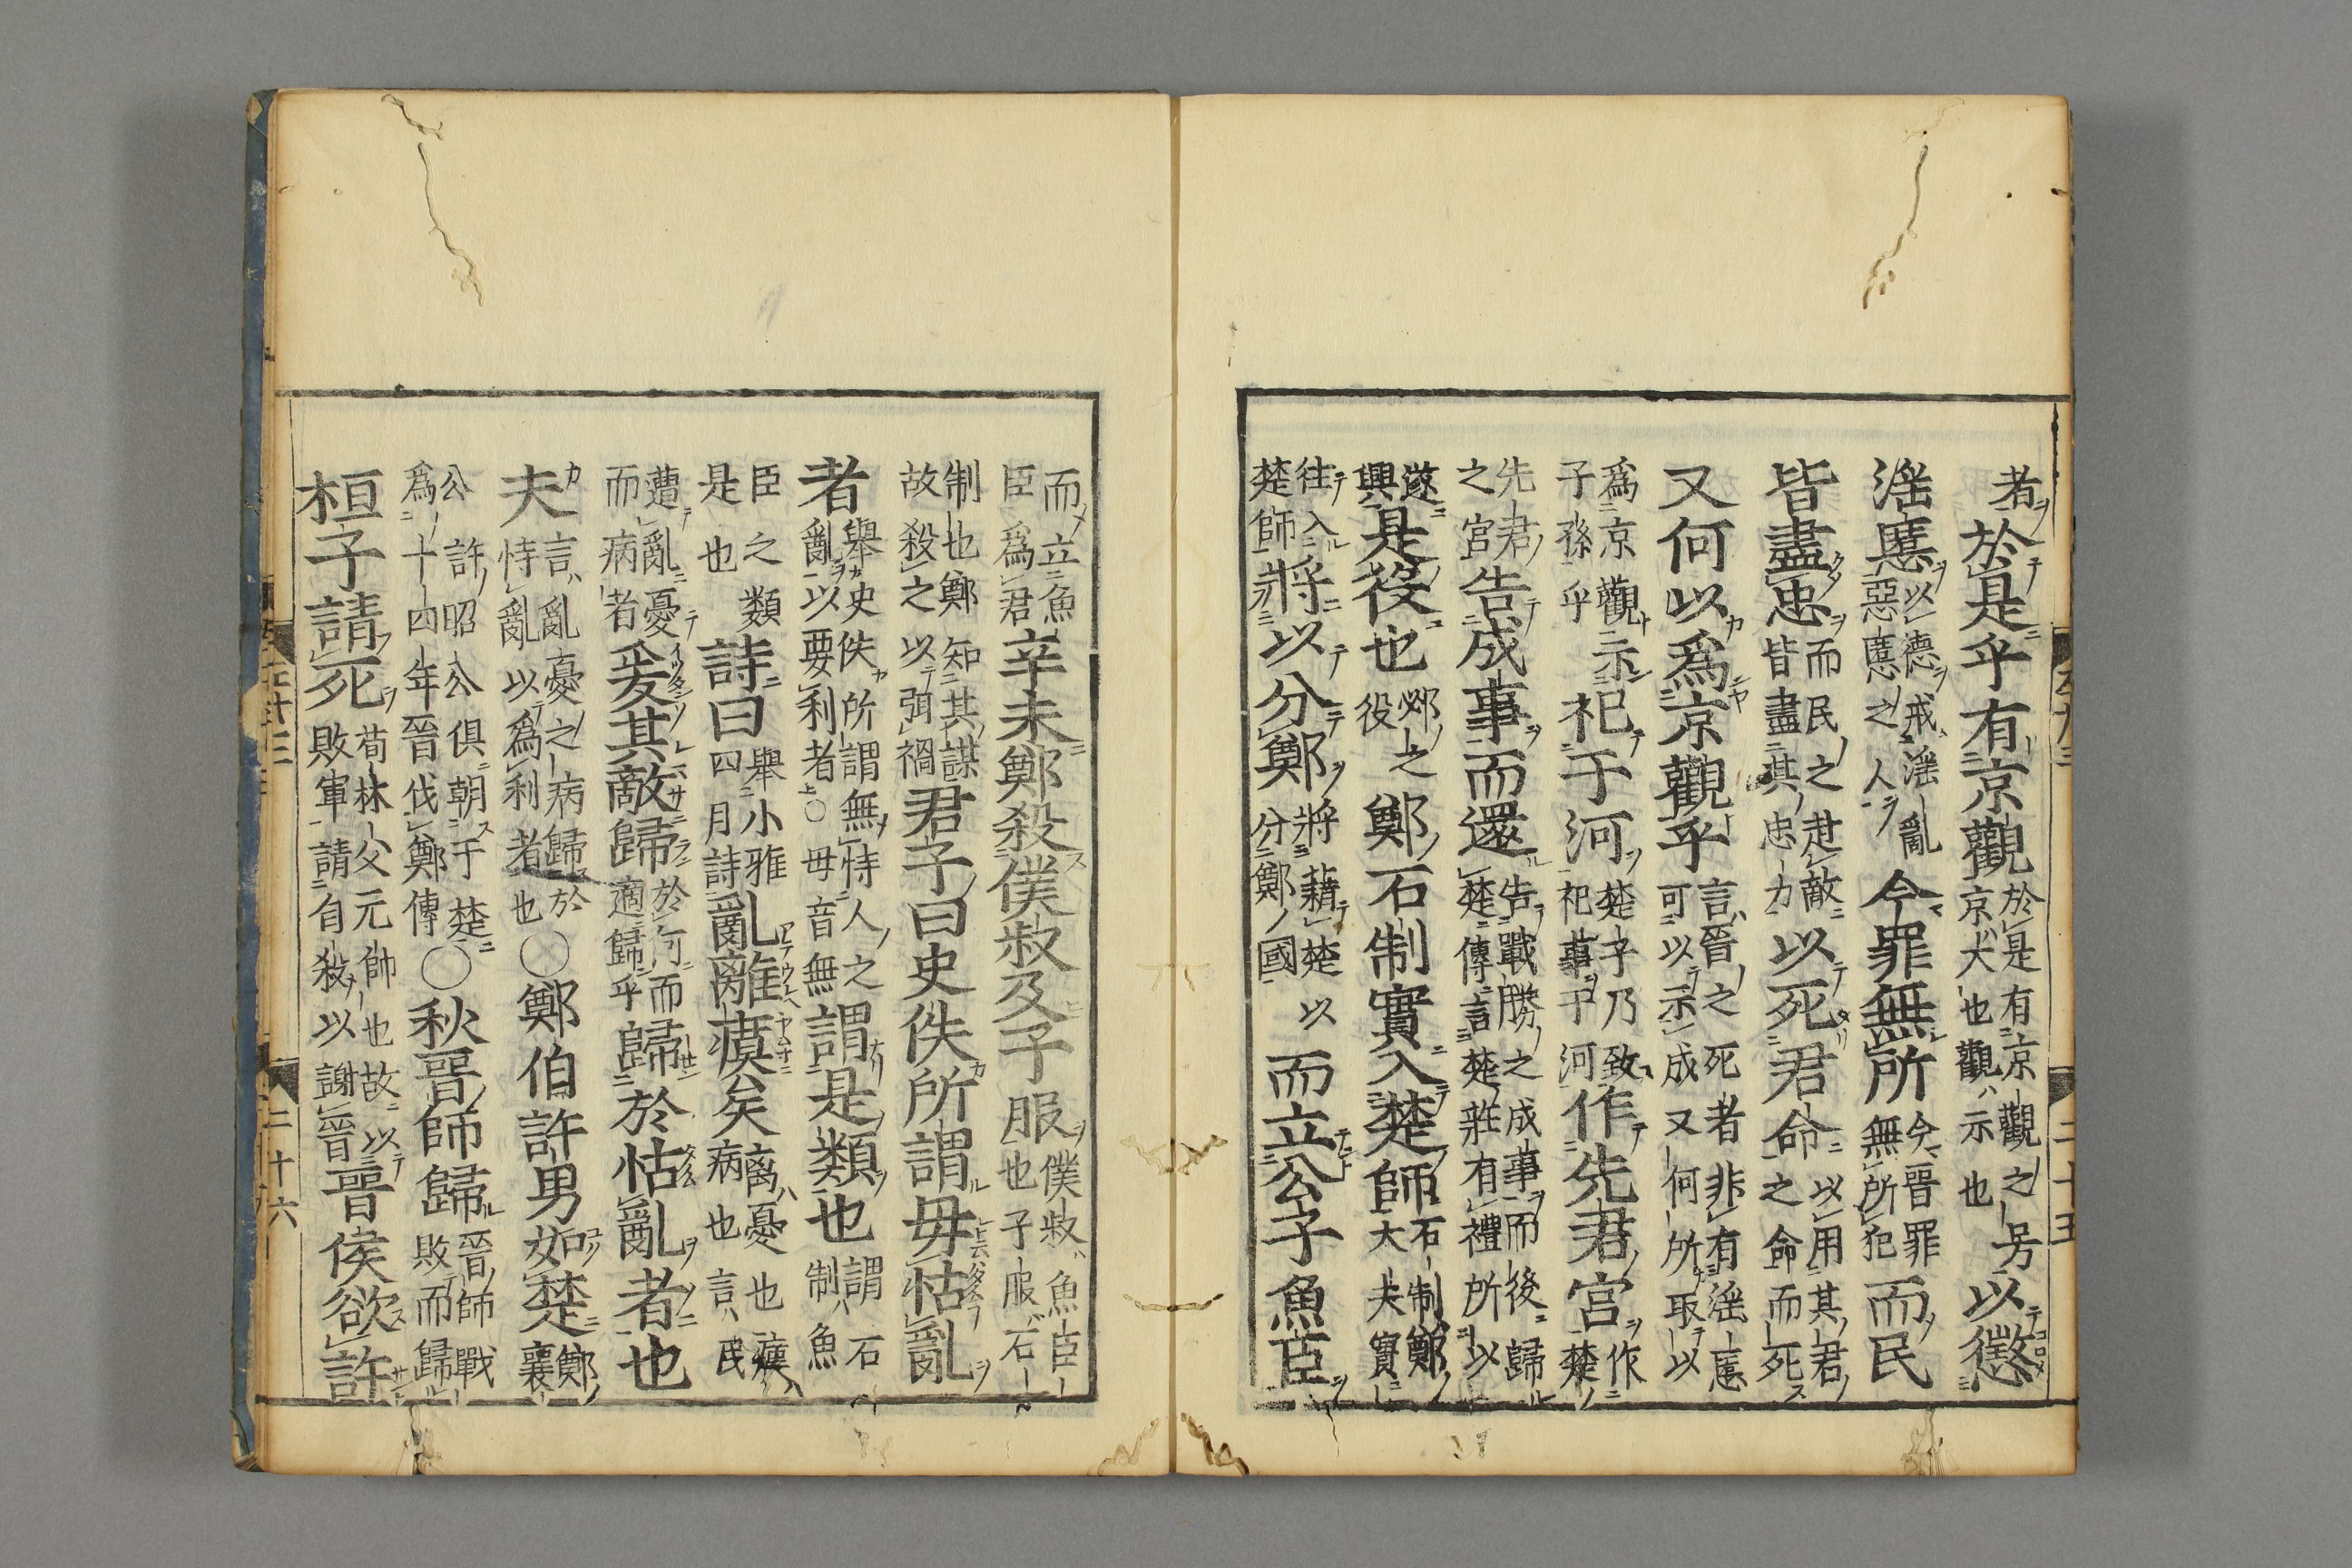 者於是乎有京觀於是有京觀之另京大也觀示也以懲
淫慝以德戒淫亂惡慝之人今罪無所今晉罪無所犯而民
皆盡忠而民之赴敵皆盡其忠力以死君命以用其君之命而死
又何以爲京觀乎言晉之死者非有淫慝可以示成又何所取以
爲京觀示子孫乎祀于河楚子乃致祀事于河作先君宮作楚
先君之宮告成事而還告戰勝之成事而後歸楚傳言楚莊有禮所以
遂興是役也邲之役鄭石制實入楚師石制鄭大夫實
往入楚師將以分鄭將藉楚以分鄭ノ國而立公子魚臣
而立魚臣爲君辛未鄭殺僕叔及子服僕叔魚臣也子服石
制也鄭知其謀故殺之以弭禍君子曰史佚所謂毋怙亂
者舉史佚所謂無恃人之亂以要利者○毋音無謂是類也謂石制魚
臣之類是也詩曰舉小雅四月詩亂離瘼矣離憂也瘼病也言民
遭亂憂而病者爰其敵歸於何而適歸乎歸於怙亂者也
夫言亂憂之病歸於恃亂以爲利者也○鄭伯許男如楚鄭襄
公許昭公俱朝于楚爲十四年晉伐鄭傳○秋晉師歸晉師戰敗而歸
桓子請死荀林父元帥也故以敗軍請自殺以謝晉晉侯欲許
二十五
二十六